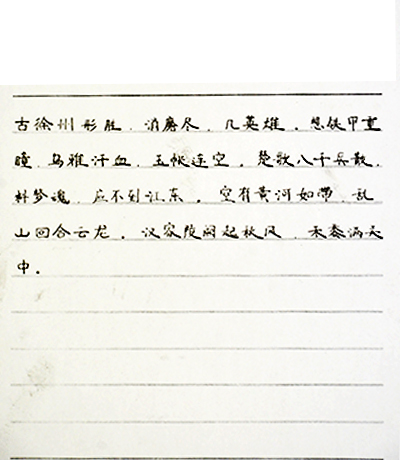 古徐州形胜，消磨尽，几英雄。想铁甲重
瞳，乌骓汗血，玉帐连空。楚歌八千兵散，
料梦魂，应不到江东。空有黄河如带，乱
山回合云龙。汉家陵阙起秋风，禾黍满关
中。